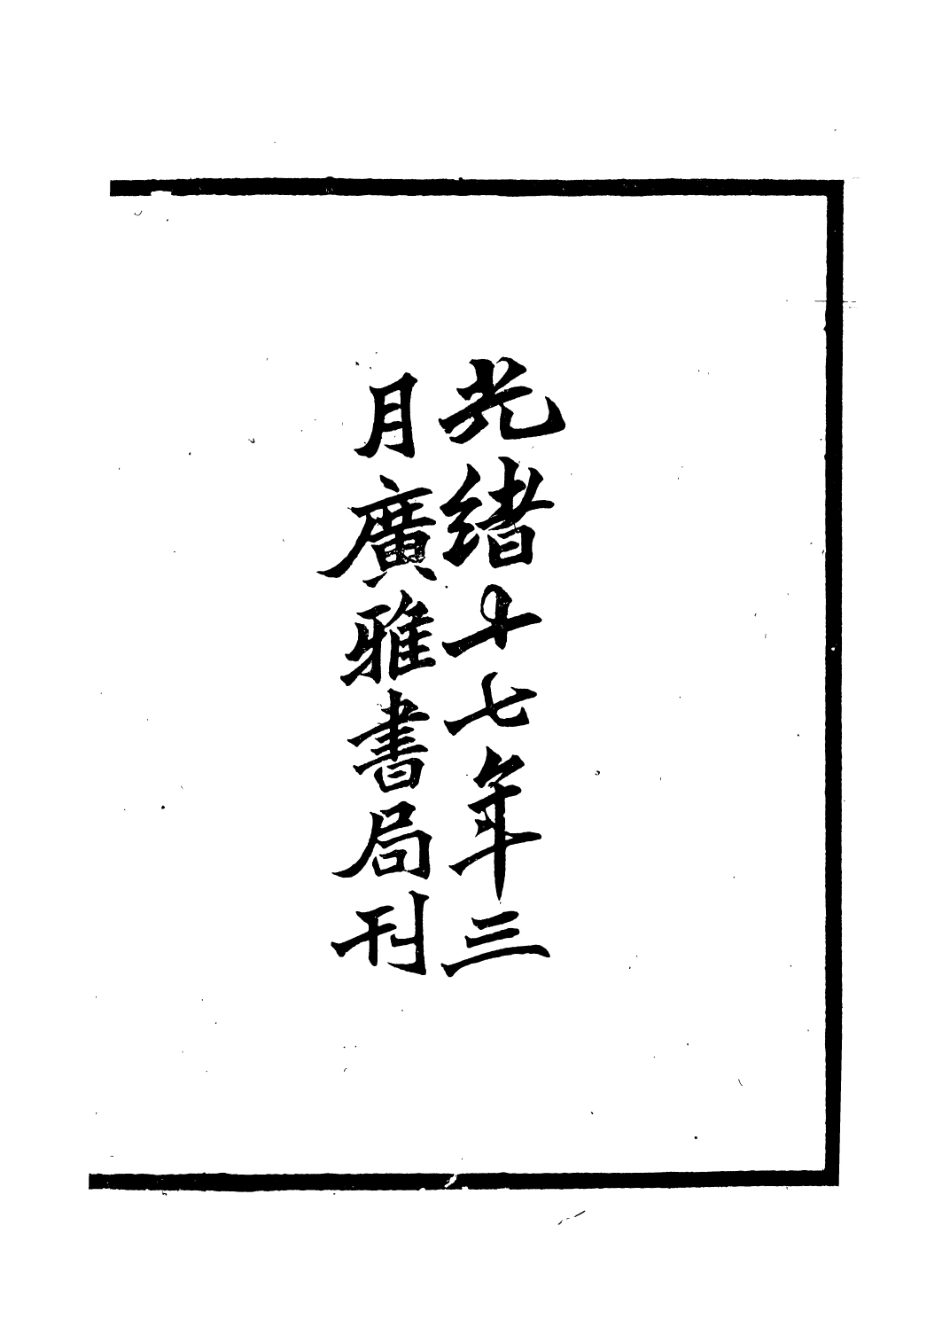 光緒十七年三
月廣雅書局刊